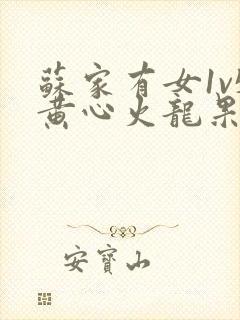 蘇家有女1v
黄心火龍果
安寶山